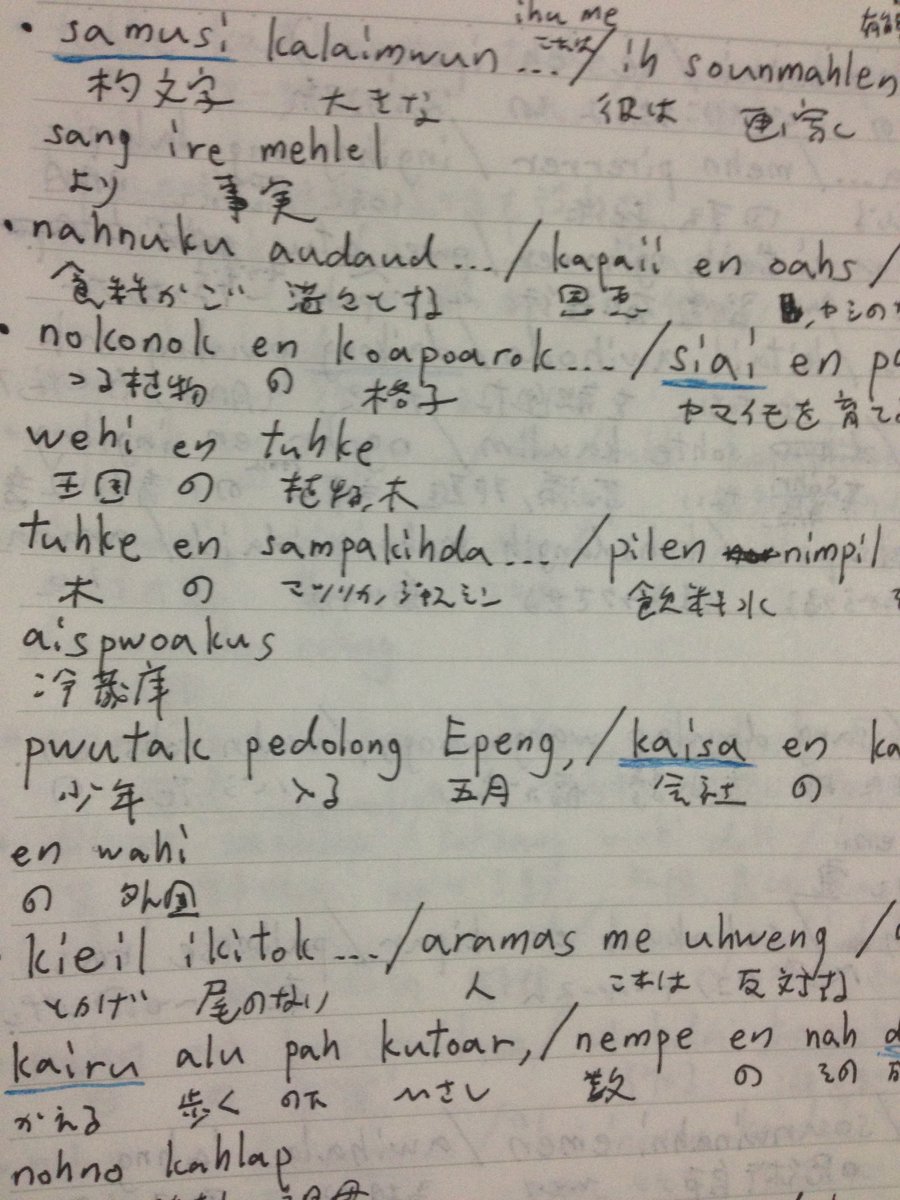 ihu me
• samusi kalaimwun ... これは / ih sounmahlen
杓文字 大きな 彼は 画家
sang ire mehlel
より 事実
• nahnuku audaud ... / kapaii en oahs /
食料かご 満々とする 恩恵
• nokonok en koapoarok ... / siai en
つる植物 の 格子 ヤマイモを育て
wehi en tuhke
王国 の 植物、木
tuhke en sampakihda ... / pilen nimpil
木 の マツリカ,ジャスミン 飲料水
aispwoakus
冷蔵庫
pwutak pedolong Epeng, / kaisa en ka
少年 入る 五月 会社 の
en wahi
の 外国
kieil ikitok ... / aramas me uhweng /
とかげ 尾のない 人 これは 反対する
kairu alu pah kutoar, / nempe en nah
かえる 歩く の下 数 の その
nohno kahlap